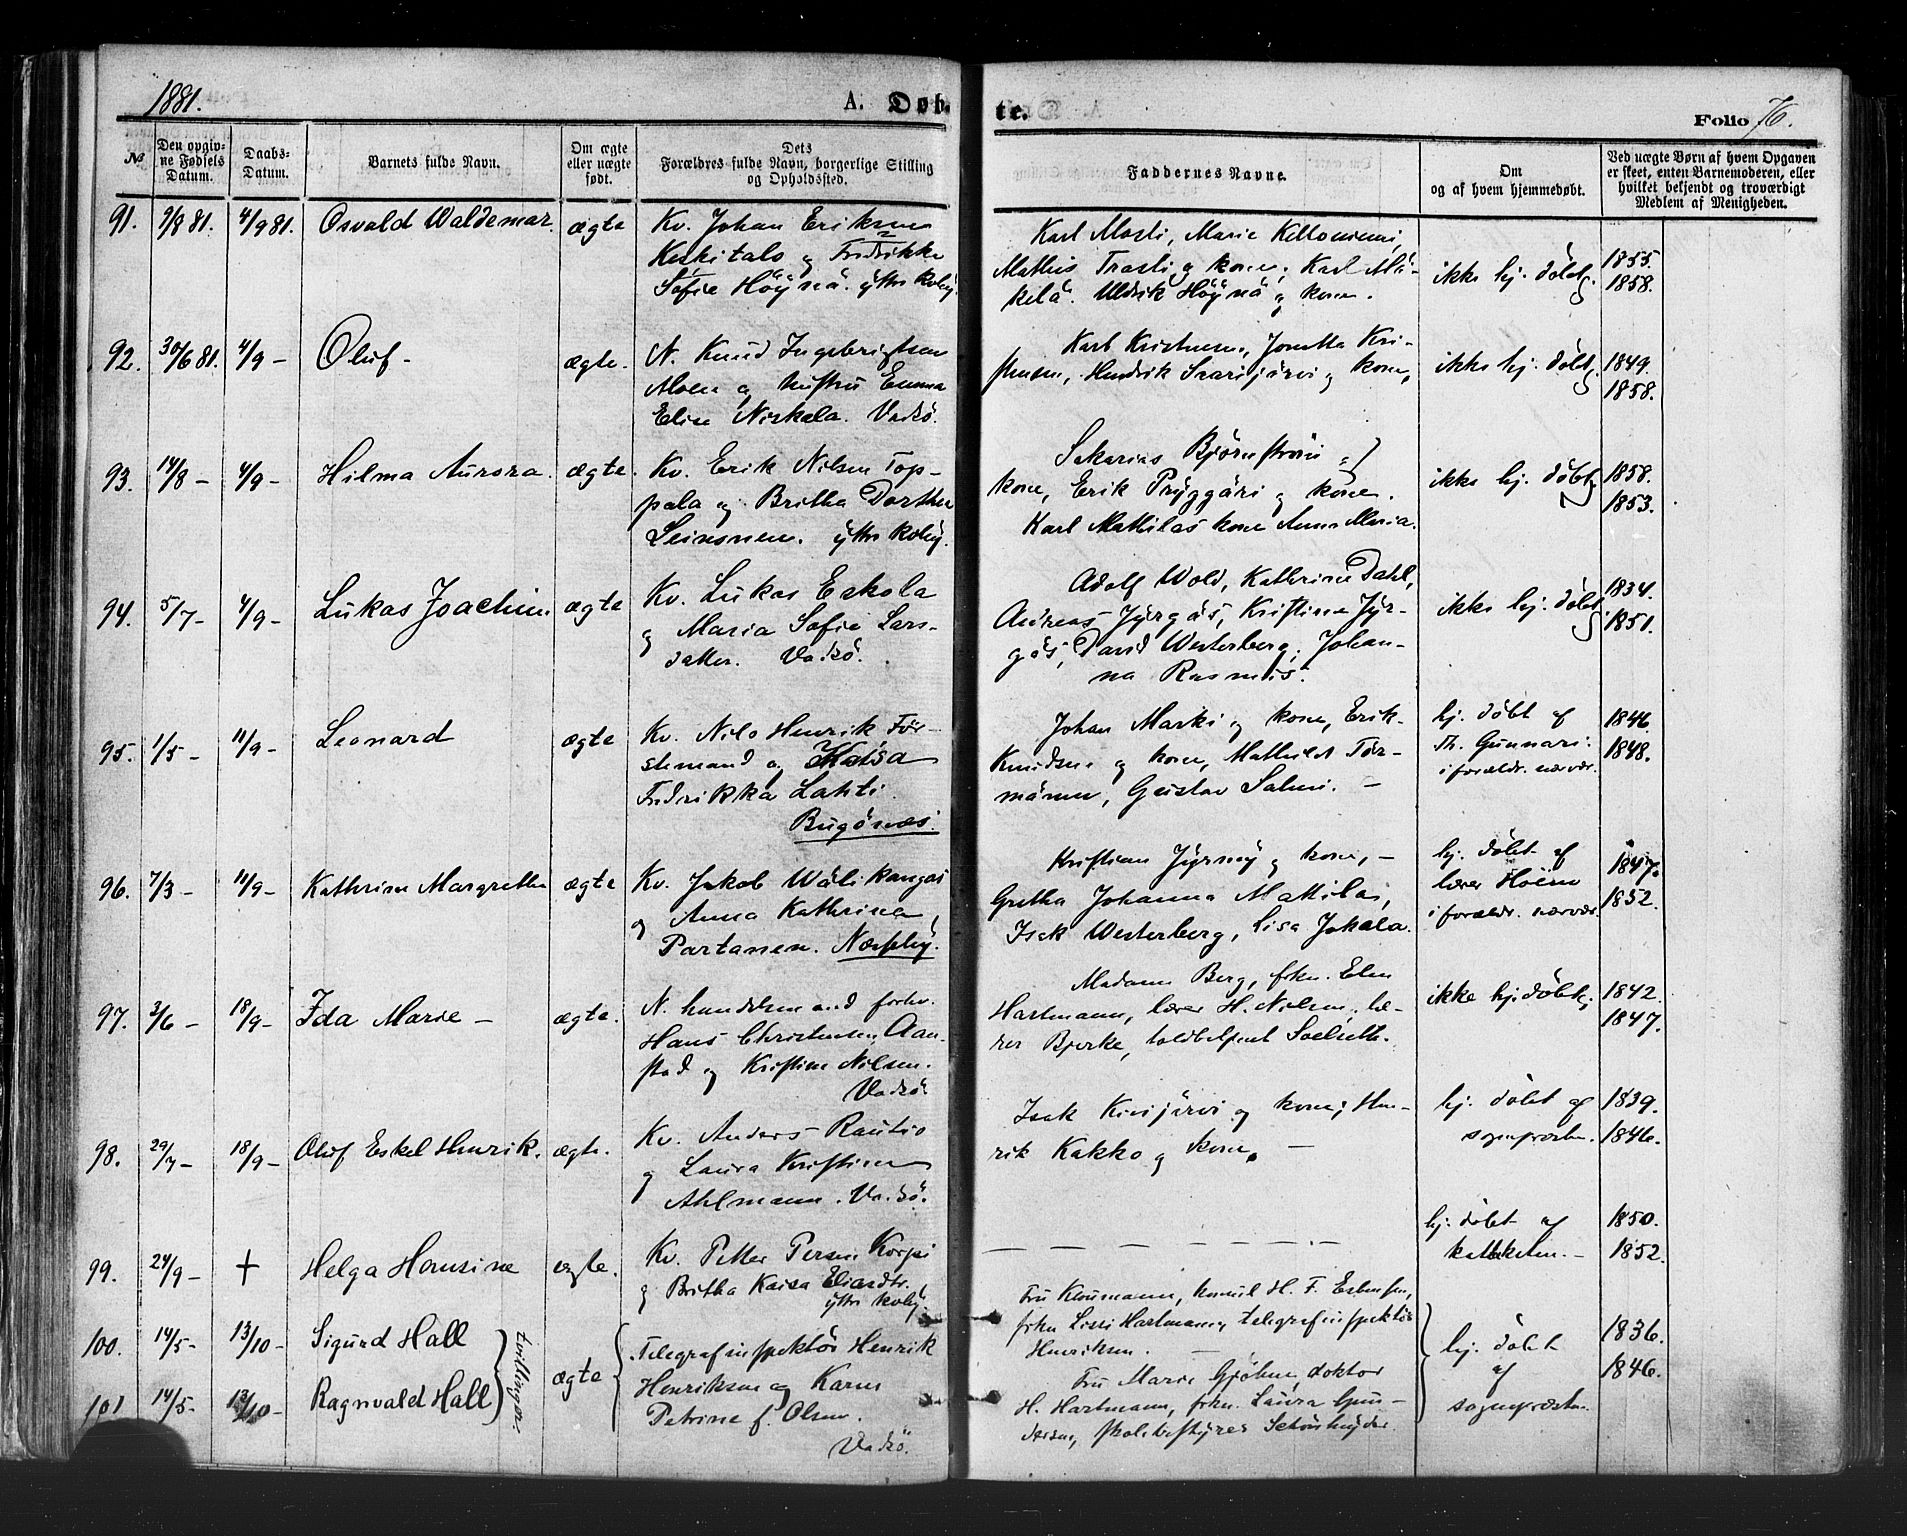 1881. A. Døb- te. Folio 76.
№ Den opgivne Fødsels Datum. Daabs-Datum. Barnets fulde Navn. Om ægte eller uægte født. Dets Forældres fulde Navn, borgerlige Stilling og Opholdssted. Faddernes Navne. Om og af hvem hjemmedøbt. Ved uægte Børn af hvem Opgaven er skeet, enten Barnemoderen, eller hvilket bekjendt og troværdigt Medlem af Menigheden.
91. 9/8 81. 4/9 81. Osvald Waldemar. ægte Kv. Johan Eriksen
Keskitalo og Fredrikke
Sofie Höÿnä. ÿttre kvbÿ.
Karl Mosli, Marie
Mathis Trasti og kone, Karl Mä-
kelä. Uldrik Höÿnä og kone.
ikke hj. döbt.
1855.
1858.
92. 30/6 81. 4/9 – Oluf – ægte. N. Knud Ingebrigtsen
Moen og hustru Emma
Elise Niskala. Vadsö.
Karl Kristensen, Jonetta Kri-
stensen, Hendrik Saarijärvi og kone,
ikke hj. döbt.
1849.
1858.
93. 14/8 – 4/9 – Hilma Aurora. ægte. Kv. Erik Nilsen Top-
pala og Britha Dorthea
Leinonen. ÿttre kvbÿ.
Sakarias Björnström og
kone, Erik Prÿggäri og kone.
Karl Mattilas kone Anna Maria.
ikke hj. döbt.
1858.
1853.
94. 5/7 – 4/9 – Lukas Joachim ægte Kv. Lukas Eskola
og Maria Sofie Lars-
datter. Vadsö.
Adolf Wold, Kathrine Dahl,
Andreas Jÿrgäs, Kristine Jÿr-
gäs, David Westerberg, Johan-
na Rasmus.
ikke hj. döbt
1834.
1851.
95. 1/5 – 11/9 – Leonard ægte Kv. Nils Henrik För-
stemand og Kaisa
Fredrikka Lahti.
Bugönæs.
Johan Marki og kone, Erik
Knudsen og kone, Mathilde Tör-
mänen, Gustav Salmi. –
hj. döbt af
Th. Gunnari.
i forældr. nærvær.
1846.
1848.
96. 7/3 – 11/9 – Kathrine Margrethe ægte Kv. Jakob Wälikangas
og Anna Kathrina
Partanen. Næsseby.
Kristian Jÿrmÿ og kone, –
Gretha Johanna Mattilas,
Isak Westerberg, Lisa Jokala.
hj. döbt af
lærer Höiem
i forældr. nærvær.
1847.
1852.
97. 2/6 – 18/9 – Ida Marie – ægte. N. handelsmand forhv.
Hans Christensen Aan-
stad og Kristine Nilsen.
Vadsö
Madame Berg, frkn. Elen
Hartmann, lærer H. Nilsen, læ-
rer Bjerke, toldbetjent Soelseth.
ikke hj. döbt.
1842.
1847.
98. 29/7 – 18/9 – Oluf Eskel Henrik. ægte. Kv. Anders Rautio
og Laura Kristine
Ahlmann. Vadsö.
Isak Kivijärvi og kone, Hen-
rik Kakko og kone. –
hj. döbt af
sognepræsten.
1839.
1846.
99. 24/9 – + Helga Hansine ægte. Kv. Petter Persen Korpi
og Britha Kaisa Eliasdtr.
ÿttre kvbÿ.
– – – – –
hj. döbt af
katketen. –
1850.
1852.
100. 14/5 – 13/10 – Sigurd Hall
101 14/5 – 13/10 – Ragnvald Hall
tvillinger.
ægte
Telegrafinspektör Henrik
Henriksen og Karen
Petrine f. Olsen.
Vadsö.
Fru Kloumann, konsul H. F. Esbensen,
frkn Lissi Hartmann, telegrafinspektör
Henriksen. –
Fru Marie Gjöhne, doktor
H. Hartmann, frkn. Laura Gun-
dersen, skolebestyrer Schönheyder.
hj. döbt
af
sognepræsten.
1836.
1846.